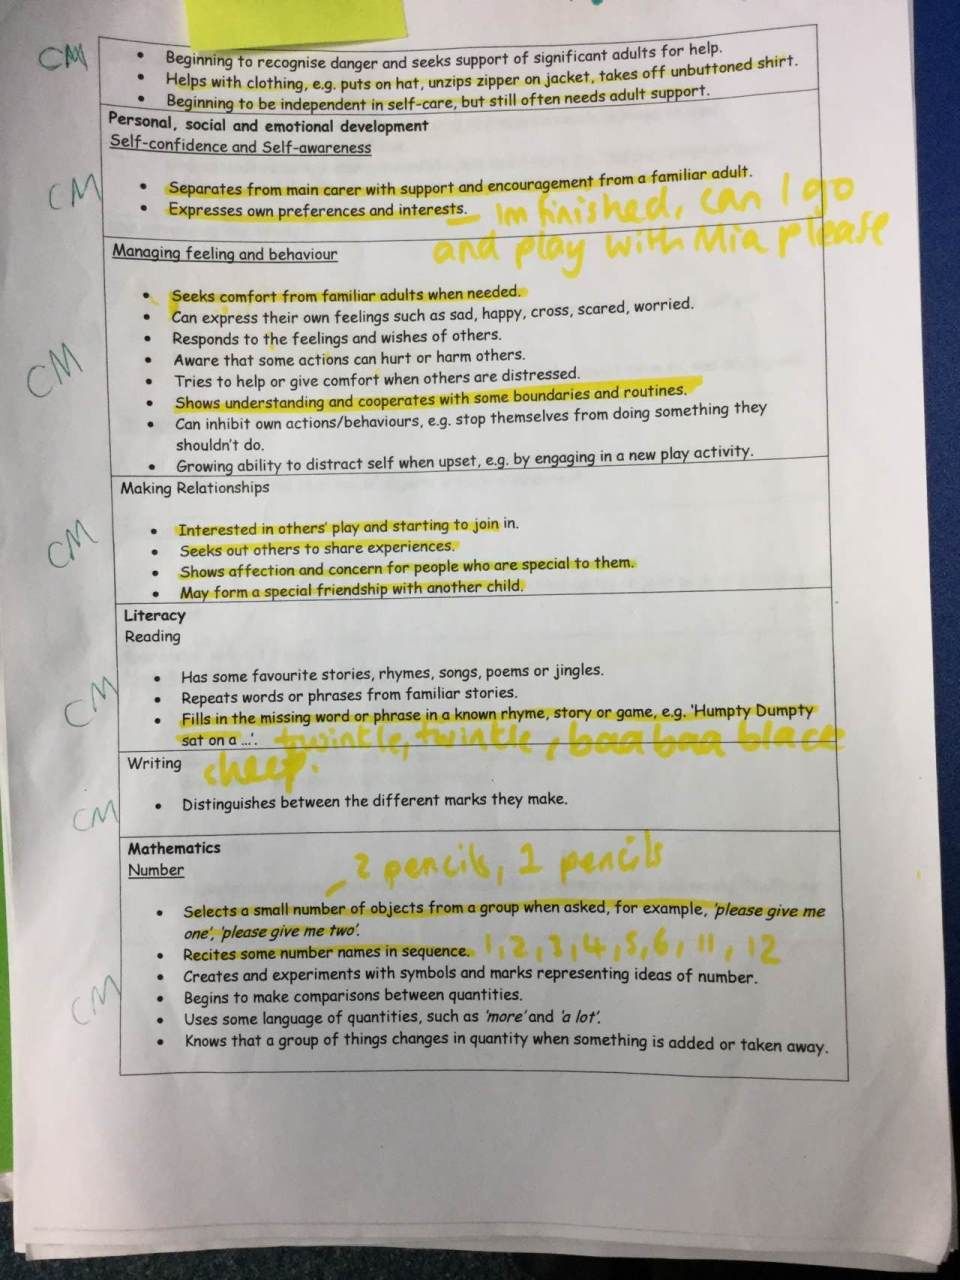 CM
• Beginning to recognise danger and seeks support of significant adults for help.
• Helps with clothing, e.g. puts on hat, unzips zipper on jacket, takes off unbuttoned shirt.
• Beginning to be independent in self-care, but still often needs adult support.
Personal, social and emotional development
Self-confidence and Self-awareness
CM
• Separates from main carer with support and encouragement from a familiar adult.
• Expresses own preferences and interests. – Im finished, can I go
and play with Mia please
Managing feeling and behaviour
• Seeks comfort from familiar adults when needed.
• Can express their own feelings such as sad, happy, cross, scared, worried.
• Responds to the feelings and wishes of others.
CM
• Aware that some actions can hurt or harm others.
• Tries to help or give comfort when others are distressed.
• Shows understanding and cooperates with some boundaries and routines.
• Can inhibit own actions/behaviours, e.g. stop themselves from doing something they
shouldn't do.
• Growing ability to distract self when upset, e.g. by engaging in a new play activity.
Making Relationships
CM
• Interested in others' play and starting to join in.
• Seeks out others to share experiences.
• Shows affection and concern for people who are special to them.
• May form a special friendship with another child.
Literacy
Reading
• Has some favourite stories, rhymes, songs, poems or jingles.
CM
• Repeats words or phrases from familiar stories.
• Fills in the missing word or phrase in a known rhyme, story or game, e.g. 'Humpty Dumpty
sat on a ...'. twinkle, twinkle, baa baa black
sheep.
Writing
CM
• Distinguishes between the different marks they make.
Mathematics
Number
– 2 pencils, 1 pencils
• Selects a small number of objects from a group when asked, for example, 'please give me
one', 'please give me two'.
• Recites some number names in sequence. 1, 2, 3, 4, 5, 6, 11, 12
• Creates and experiments with symbols and marks representing ideas of number.
CM
• Begins to make comparisons between quantities.
• Uses some language of quantities, such as 'more' and 'a lot'.
• Knows that a group of things changes in quantity when something is added or taken away.